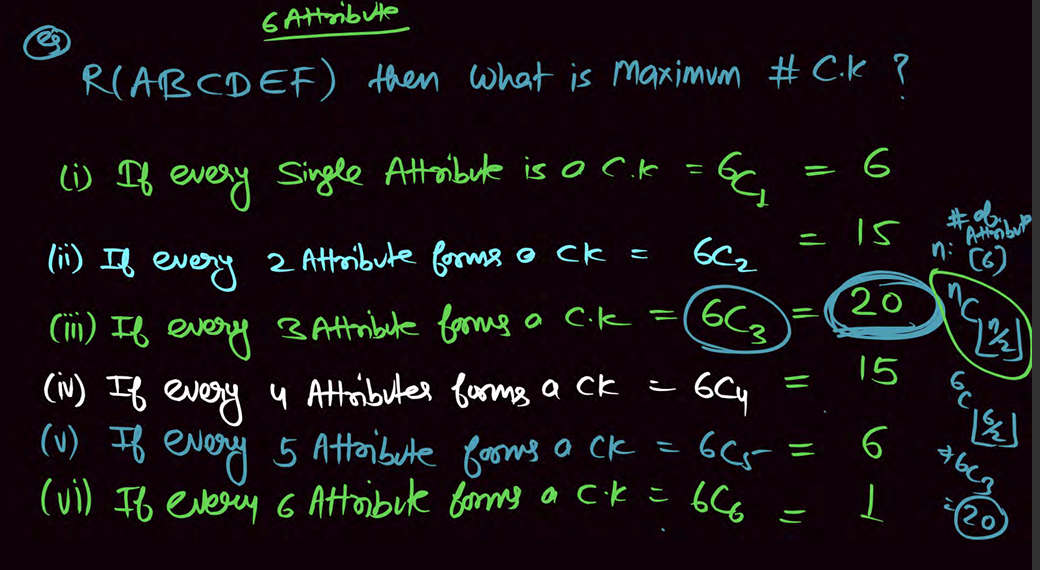 6 Attribute
eg
R(ABCDEF) then What is Maximum # C.K ?
(i) If every Single Attribute is a C.K = 6C1 = 6
(ii) If every 2 Attribute forms a CK = 6C2 = 15
(iii) If every 3 Attribute forms a C.K = 6C3 = 20
(iv) If every 4 Attributes forms a CK = 6C4 = 15
(v) If every 5 Attribute forms a CK = 6C5 = 6
(vi) If every 6 Attribute forms a C.K = 6C6 = 1
# of Attribute
n: (6)
nC⌊n/2⌋
6C⌊6/2⌋
⇒ 6C3
= 20